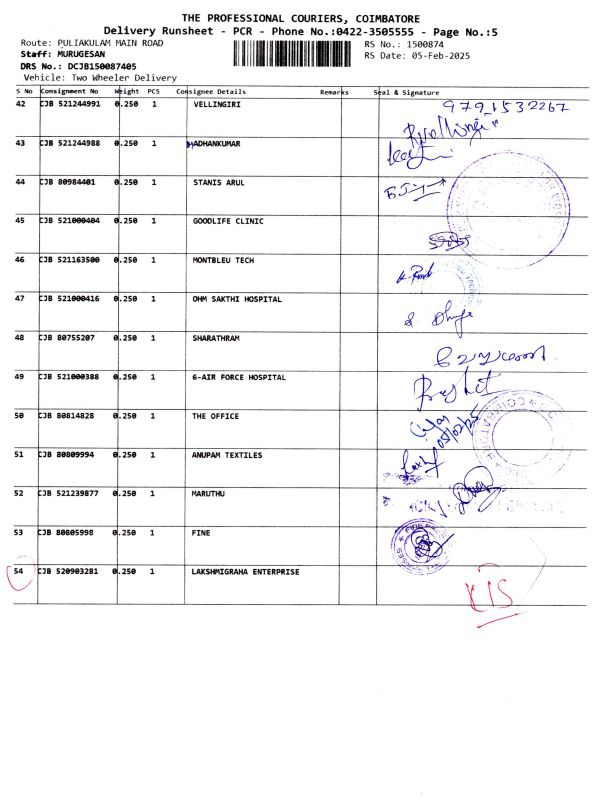 THE PROFESSIONAL COURIERS, COIMBATORE
Delivery Runsheet - PCR - Phone No.:0422-3505555 - Page No.:5
Route: PULIAKULAM MAIN ROAD RS No.: 1500874
Staff: MURUGESAN RS Date: 05-Feb-2025
DRS No.: DCJB150087405
Vehicle: Two Wheeler Delivery
S No Consignment No Weight PCS Consignee Details Remarks Seal & Signature
42 CJB 521244991 0.250 1 VELLINGIRI 979 1532267
43 CJB 521244988 0.250 1 MADHANKUMAR
44 CJB 80984401 0.250 1 STANIS ARUL
45 CJB 521000404 0.250 1 GOODLIFE CLINIC
46 CJB 521163500 0.250 1 MONTBLEU TECH
47 CJB 521000416 0.250 1 OHM SAKTHI HOSPITAL
48 CJB 80755207 0.250 1 SHARATHRAM
49 CJB 521000388 0.250 1 6-AIR FORCE HOSPITAL
50 CJB 80814828 0.250 1 THE OFFICE
05/02/25
51 CJB 80809994 0.250 1 ANUPAM TEXTILES
52 CJB 521239877 0.250 1 MARUTHU
53 CJB 80805998 0.250 1 FINE
54 CJB 520903281 0.250 1 LAKSHMIGRAHA ENTERPRISE